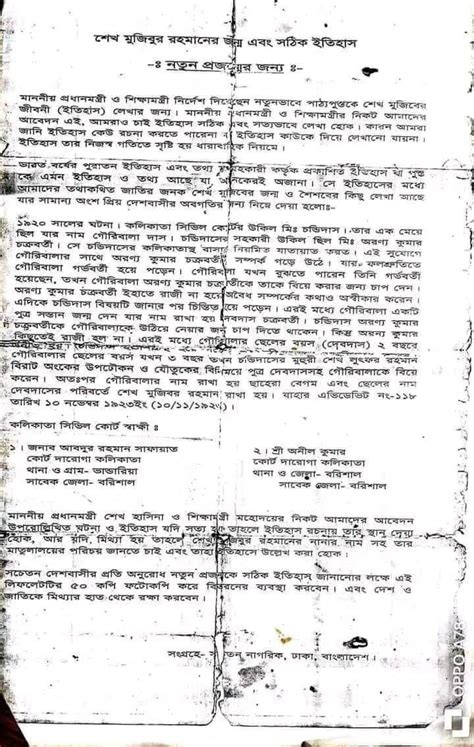 শেখ মুজিবুর রহমানের জন্ম এবং সঠিক ইতিহাস
-ঃ নতুন প্রজন্মের জন্য ঃ-
মাননীয় প্রধানমন্ত্রী ও শিক্ষামন্ত্রী নির্দেশ দিয়েছেন নতুনভাবে পাঠ্যপুস্তকে শেখ মুজিবের
জীবনী (ইতিহাস) লেখার জন্য। মাননীয় প্রধানমন্ত্রী ও শিক্ষামন্ত্রীর নিকট আমাদের
আবেদন এই, আমরাও চাই ইতিহাস সঠিক এবং সত্যভাবে লেখা হোক। কারন আমরা
জানি ইতিহাস কেউ রচনা করতে পারেনা বা ইতিহাস কাউকে দিয়ে লেখানো যায়না।
ইতিহাস তার নিজস্ব গতিতে সৃষ্টি হয় ধারাবাহিক নিয়মে।
ভারত বর্ষের পুরাতন ইতিহাস এবং তথ্য কর্তৃক প্রকাশিত ইতিহাস
এমন ইতিহাস ও তথ্য আছে যা অনেকেরই অজানা। সে ইতিহাসের মধ্যে
আমাদের তথাকথিত জাতির জনক শেখ মুজিবের জন্ম ও শৈশবের কিছু লেখা আছে
যার সামান্য অংশ প্রিয় দেশবাসীর অবগতির জন্য নিম্নে দেয়া হলোঃ-
১৯২০ সালের ঘটনা। কলিকাতা সিভিল কোর্টের উকিল মিঃ চন্ডিদাস। তার এক মেয়ে
ছিল যার নাম গৌরিবালা দাস। চন্ডিদাসের সহকারী উকিল ছিল মিঃ অরণ্য কুমার
চক্রবর্তী। সে চন্ডিদাসের কলিকাতাস্থ বাসায় নিয়মিত যাতায়াত করত। এই সুযোগে
গৌরিবালার সাথে অরণ্য কুমার চক্রবর্তী সম্পর্ক গড়ে উঠে। যার ফলশ্রুতিতে
গৌরিবালা গর্ভবতী হয়ে পড়েন। গৌরিবালা যখন বুঝতে পারেন তিনি গর্ভবতী
হয়েছেন, তখন গৌরিবালা অরণ্য কুমার চক্রবর্তীকে তাকে বিয়ে করার জন্য চাপ দেন।
অরণ্য কুমার চক্রবর্তী ইহাতে রাজী না হয়ে অবৈধ সম্পর্কের কথাও অস্বীকার করেন।
এদিকে চন্ডিদাস বিষয়টি জানার পর চিন্তিত হয়ে পড়েন। এরই মধ্যে গৌরিবালা একটি
পুত্র সন্তান জন্ম দেন যার নাম রাখা হয় দেবদাস চক্রবর্তী। চন্ডিদাস অরণ্য কুমার
চক্রবর্তীকে গৌরিবালাকে উঠিয়ে নেয়ার জন্য চাপ দিতে থাকেন। কিন্তু অরন্য কুমার
কিছুতেই রাজী হল না। এরই মধ্যে গৌরিবালার ছেলের বয়স (দেবদাস) ২ বছরে
গৌরিবালার ছেলের বয়স যখন ৩ বছর তখন চন্ডিদাসের মুহুরী শেখ লুৎফর রহমান
বিরাট অংকের উপঢৌকন ও যৌতুকের পুত্র দেবদাসসহ গৌরিবালাকে বিয়ে
করেন। অতঃপর গৌরিবালার নাম রাখা হয় ছাহেরা বেগম এবং ছেলের নাম
দেবদাসের পরিবর্তে শেখ মুজিবুর রহমান রাখা হয়। যাহার এভিডেভিট নং-১১৮
তারিখ ১০ নভেম্বর ১৯২৩ইং
কলিকাতা সিভিল কোর্ট স্বাক্ষী ঃ
১। জনাব আবদুর রহমান সাফায়াত
কোর্ট দারোগা কলিকাতা
থানা ও গ্রাম- ভান্ডারিয়া
সাবেক জেলা- বরিশাল
২। শ্রী অনীল কুমার
কোর্ট দারোগা কলিকাতা
থানা ও জেলা- বরিশাল
সাবেক জেলা- বরিশাল
মাননীয় প্রধানমন্ত্রী শেখ হাসিনা ও শিক্ষামন্ত্রী মহোদয়ের নিকট আমাদের আবেদন
উপরোল্লিখিত ঘটনা ও ইতিহাস যদি সত্য তাহলে ইতিহাস রচনায় তার স্থান দেয়া
হোক, আর যদি, মিথ্যা হয় তাহলে শেখ মুজিবুর রহমানের নানার নাম সহ তার
মাতুলালয়ের পরিচয় জানতে চাই এবং তাহা ইতিহাসে উল্লেখ করা হোক।
সচেতন দেশবাসীর প্রতি অনুরোধ নতুন প্রজন্মকে সঠিক ইতিহাস জানানোর লক্ষে এই
লিফলেটটির ৫০ কপি ফটোকপি করে বিতরনের ব্যবস্থা করবেন। এবং দেশ ও
জাতিকে মিথ্যার হাত থেকে রক্ষা করবেন।
সংগ্রহে- সচেতন নাগরিক, ঢাকা, বাংলাদেশ।
OPPO A78